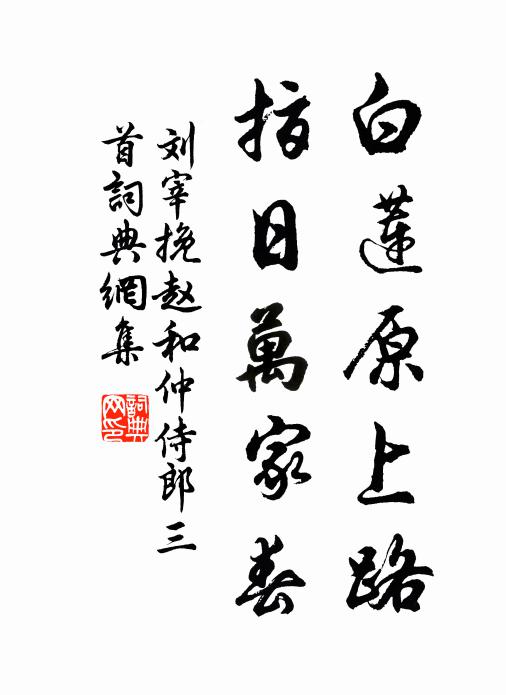 白蓮原上路
指日萬家春
刘宰挽赵和仲侍郎三
首詞典網集
詞典网印